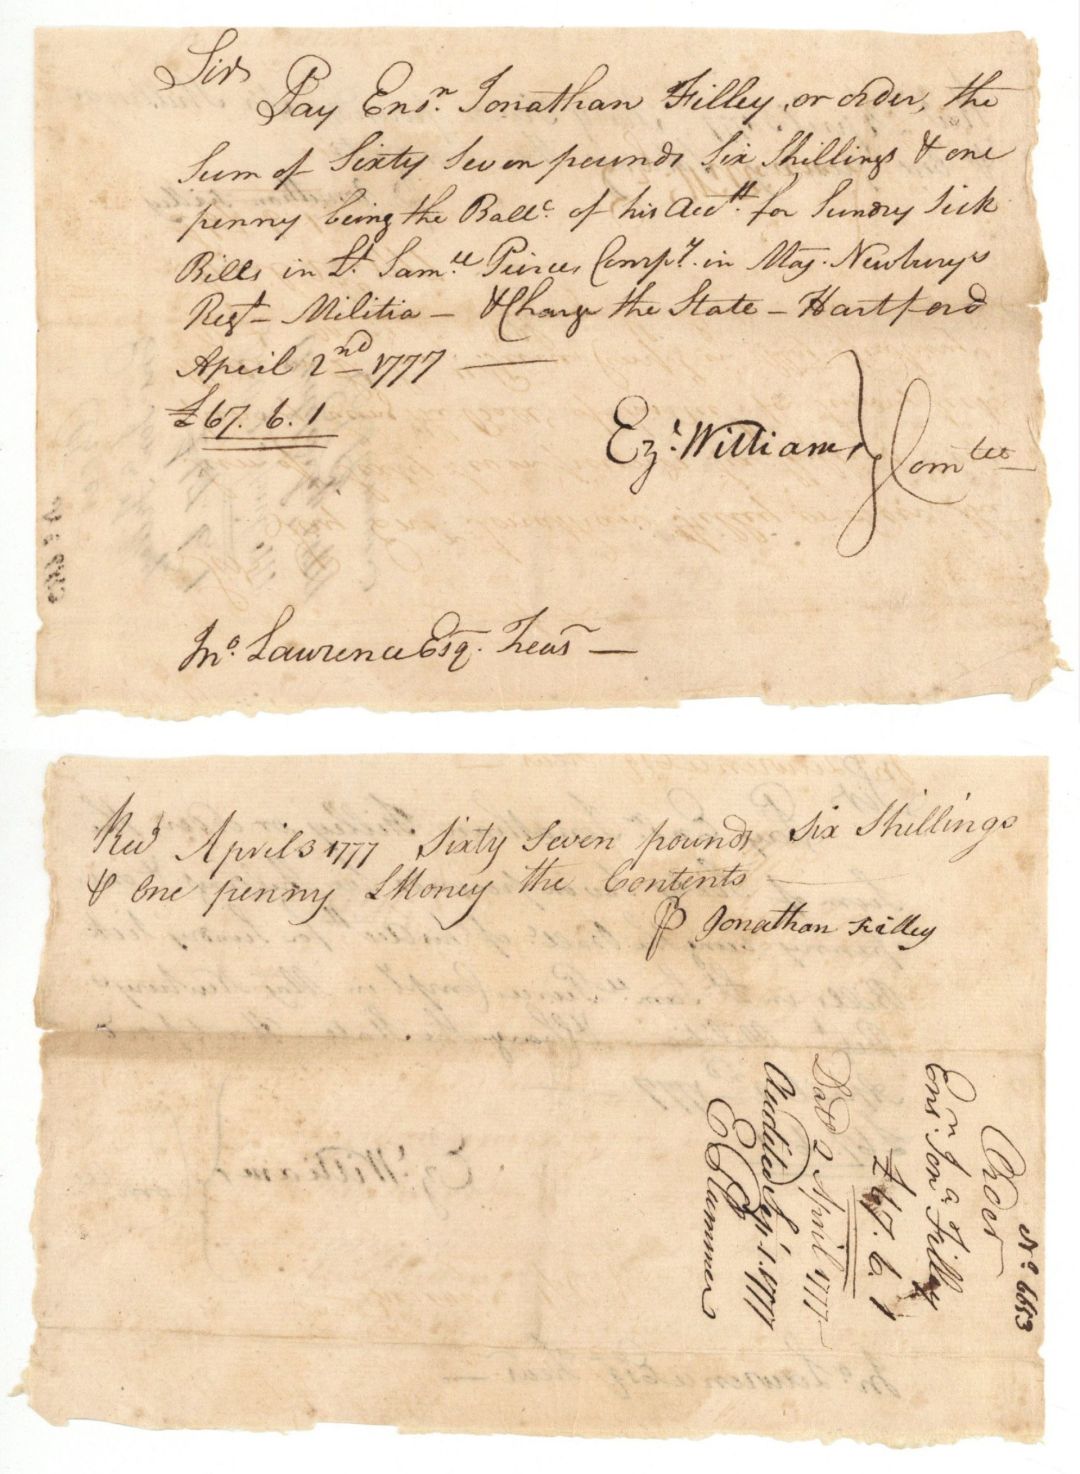 Sir
Pay Ensn. Jonathan Filley, or order, the
Sum of Sixty Seven pounds Six Shillings & one
penny being the Ballc. of his Acctt. for Sundry Sick
Bills in Lt. Samll. Peirces Compy. in Maj. Newburys
Regt Militia — & Charge the State — Hartford
April 2nd 1777 —
£67. 6. 1
Ezl. Williams } Comtee
Jno. Lawrence Esq. Treasr —
Recd April 3 1777 Sixty Seven pounds Six Shillings
& One penny LMoney the Contents —
P Jonathan Filley
No. 6653
Order
Ensn. Jona. Filley
£67. 6. 1
Datd 2 April 1777
Audited Sepr. 1. 1777